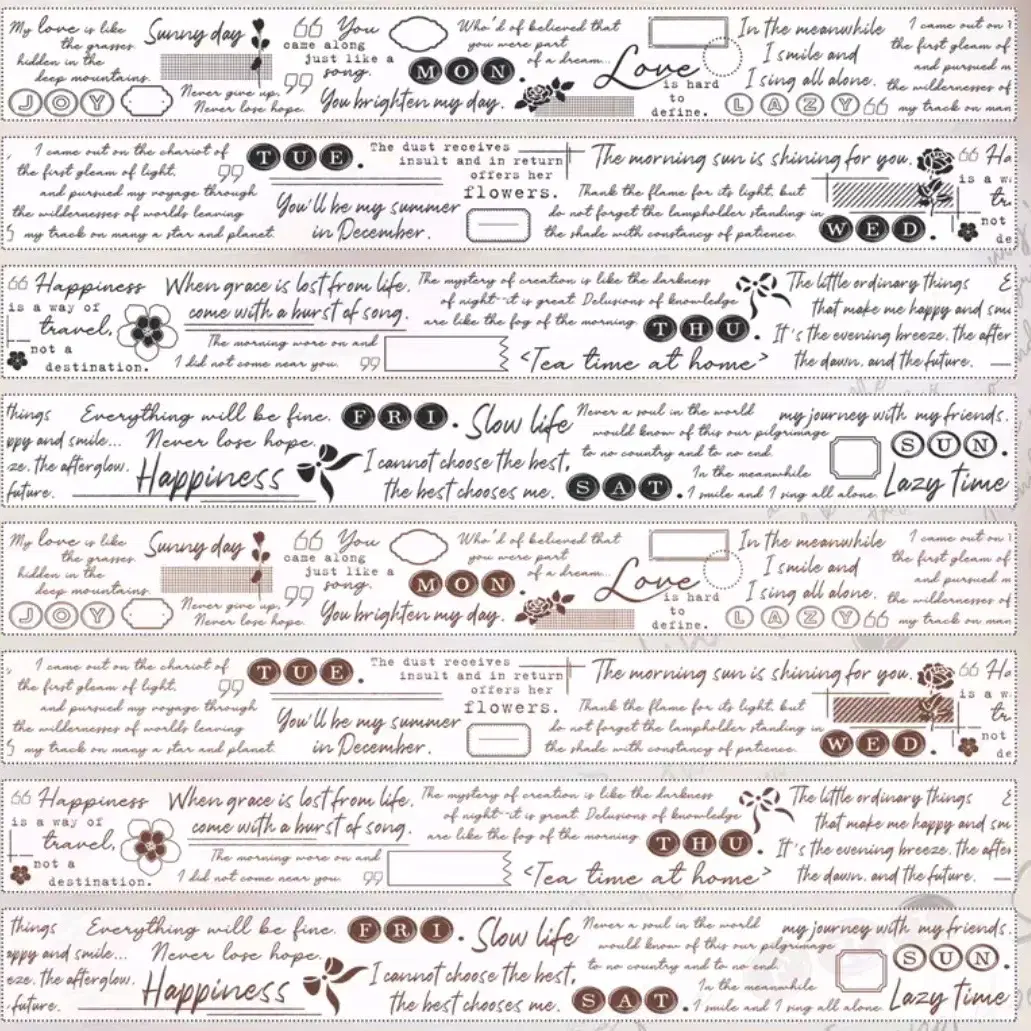 My love is like
the grasses
hidden in the
deep mountains.
JOY
Sunny day
Never give up,
Never lose hope.
“ You
came along
just like a
song. ”
You brighten my day.
Who'd of believed that
you were part
of a dream...
MON.
Love
is hard
to
define.
In the meanwhile
I smile and
I sing all alone.
LAZY
“
I came out on
the first gleam of
and pursued m
the wildernesses of
my track on man
I came out on the chariot of
the first gleam of light,
and pursued my voyage through
the wildernesses of worlds leaving
my track on many a star and planet.
”
TUE.
You'll be my summer
in December.
The dust receives
insult and in return
offers her
flowers.
The morning sun is shining for you.
Thank the flame for its light, but
do not forget the lampholder standing in
the shade with constancy of patience.
WED.
“ Ha
is a w
tr
not
de
“ Happiness
is a way of
travel,
not a
destination.
When grace is lost from life,
come with a burst of song.
The morning wore on and
I did not come near you. ”
The mystery of creation is like the darkness
of night--it is great. Delusions of knowledge
are like the fog of the morning.
THU.
<Tea time at home>
The little ordinary things
that make me happy and smi
It's the evening breeze, the after
the dawn, and the future.
things
ppy and smile...
ze, the afterglow,
future.
Everything will be fine.
Never lose hope.
Happiness
FRI.
Slow life
I cannot choose the best,
the best chooses me.
Never a soul in the world
would know of this our pilgrimage
to no country and to no end.
In the meanwhile
I smile and I sing all alone.
SAT.
my journey with my friends.
SUN.
Lazy time
My love is like
the grasses
hidden in the
deep mountains.
JOY
Sunny day
Never give up,
Never lose hope.
“ You
came along
just like a
song. ”
You brighten my day.
Who'd of believed that
you were part
of a dream...
MON.
Love
is hard
to
define.
In the meanwhile
I smile and
I sing all alone.
LAZY
“
I came out on
the first gleam of
and pursued m
the wildernesses of
my track on man
I came out on the chariot of
the first gleam of light,
and pursued my voyage through
the wildernesses of worlds leaving
my track on many a star and planet.
”
TUE.
You'll be my summer
in December.
The dust receives
insult and in return
offers her
flowers.
The morning sun is shining for you.
Thank the flame for its light, but
do not forget the lampholder standing in
the shade with constancy of patience.
WED.
“ Ha
is a w
tr
not
de
“ Happiness
is a way of
travel,
not a
destination.
When grace is lost from life,
come with a burst of song.
The morning wore on and
I did not come near you. ”
The mystery of creation is like the darkness
of night--it is great. Delusions of knowledge
are like the fog of the morning.
THU.
<Tea time at home>
The little ordinary things
that make me happy and sm
It's the evening breeze, the after
the dawn, and the future.
things
appy and smile...
eze, the afterglow,
future.
Everything will be fine.
Never lose hope.
Happiness
FRI.
Slow life
I cannot choose the best,
the best chooses me.
Never a soul in the world
would know of this our pilgrimage
to no country and to no end.
In the meanwhile
I smile and I sing all alone.
SAT.
my journey with my friends.
SUN.
Lazy time